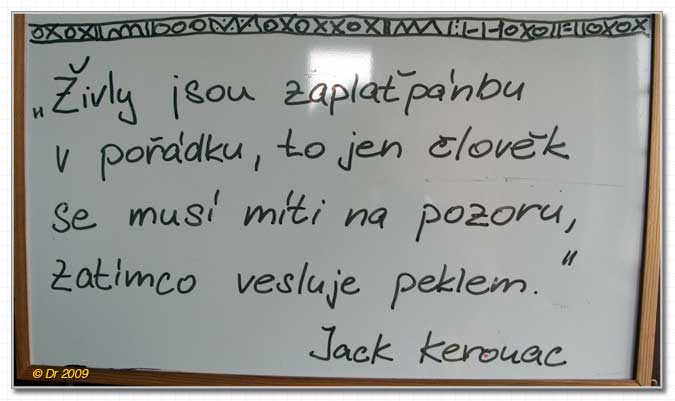 „Živly jsou záplaťpánbu
v pořádku, to jen člověk
se musí míti na pozoru,
zatímco vesluje peklem."
Jack Kerouac
© Dr 2009